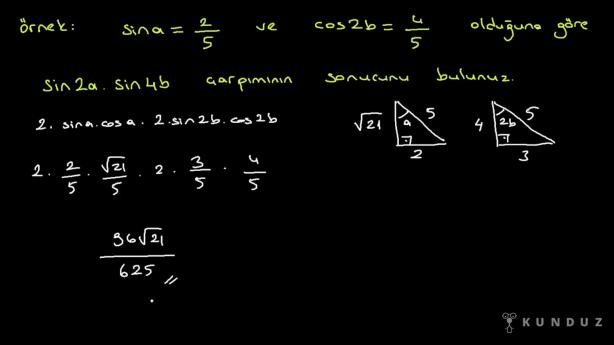 örnek: sina = 2/5 ve cos2b = 4/5 olduğuna göre
sin2a . sin4b çarpımının sonucunu bulunuz.
2 . sina . cosa . 2 . sin2b . cos2b
√21 a 5 2
4 2b 5 3
2 . 2/5 . √21/5 . 2 . 3/5 . 4/5
96√21/625 //
KUNDUZ